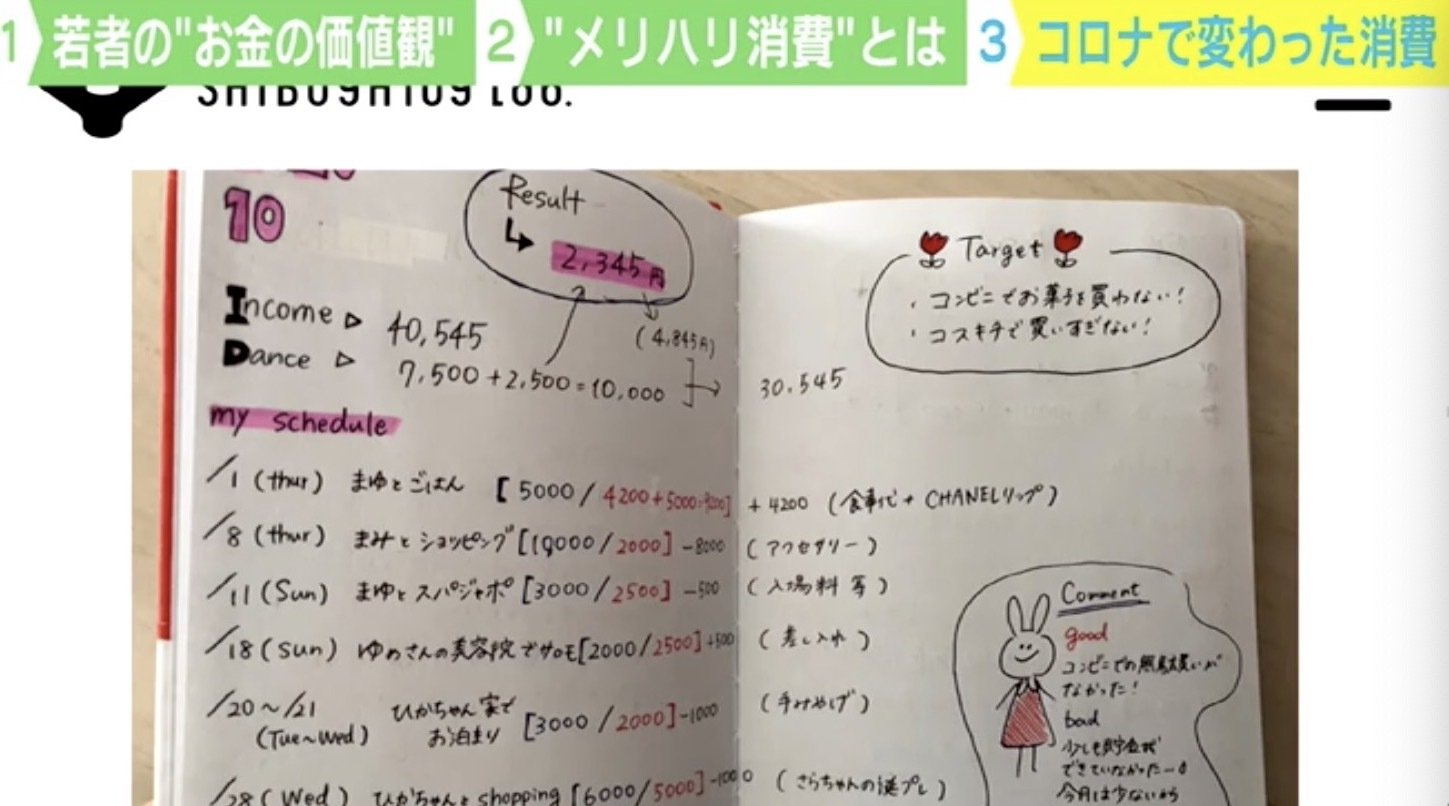 1 若者の"お金の価値観" 2 "メリハリ消費"とは 3 コロナで変わった消費
SHIBUYA109 lab.
10
Result
↳ 2,345円
(4,845円)
Income ▷ 40,545
Dance ▷ 7,500+2,500=10,000
30,545
my schedule
/1 (thur) まゆとごはん [5000/4200+5000=9200]
/8 (thur) まみとショッピング [10000/2000] -8000
/11 (Sun) まゆとスパジャポ [3000/2500] -500
/18 (Sun) ゆめさんの美容院でサロモ[2000/2500]+500
/20〜/21 (Tue〜Wed) ひかちゃん家でお泊まり [3000/2000]-1000
/28 (Wed) ひかちゃんと shopping [6000/5000]-1000
Target
・コンビニでお菓子を買わない!
・コスキチで買いすぎない!
+4200 (食事代+CHANELリップ)
(アクセサリー)
(入場料等)
(差し入れ)
(手みやげ)
(さらちゃんの誕プレ)
Comment
good
コンビニでの無駄買いが
なかった!
bad
少しも貯金が
できていなかったー
今月は少ないから